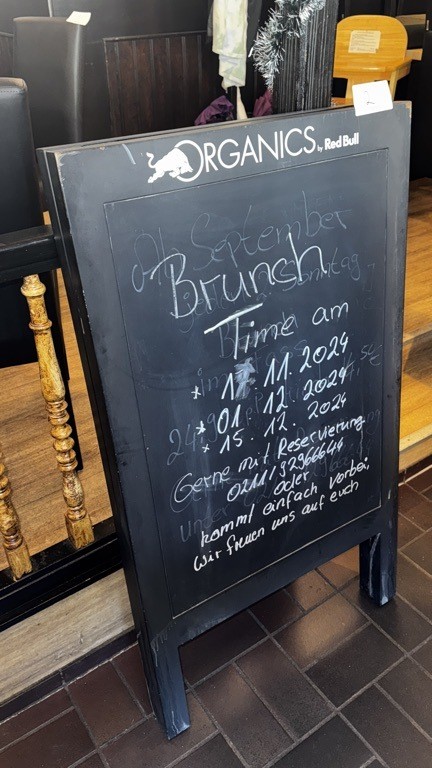 ORGANICS by Red Bull
Ab September
Brunch
Sonntag
Time am
* 17.11.2024
* 01.12.2024
* 15.12.2024
Gerne mit Reservierung
0211/92966646
oder
kommt einfach vorbei,
wir freuen uns auf euch